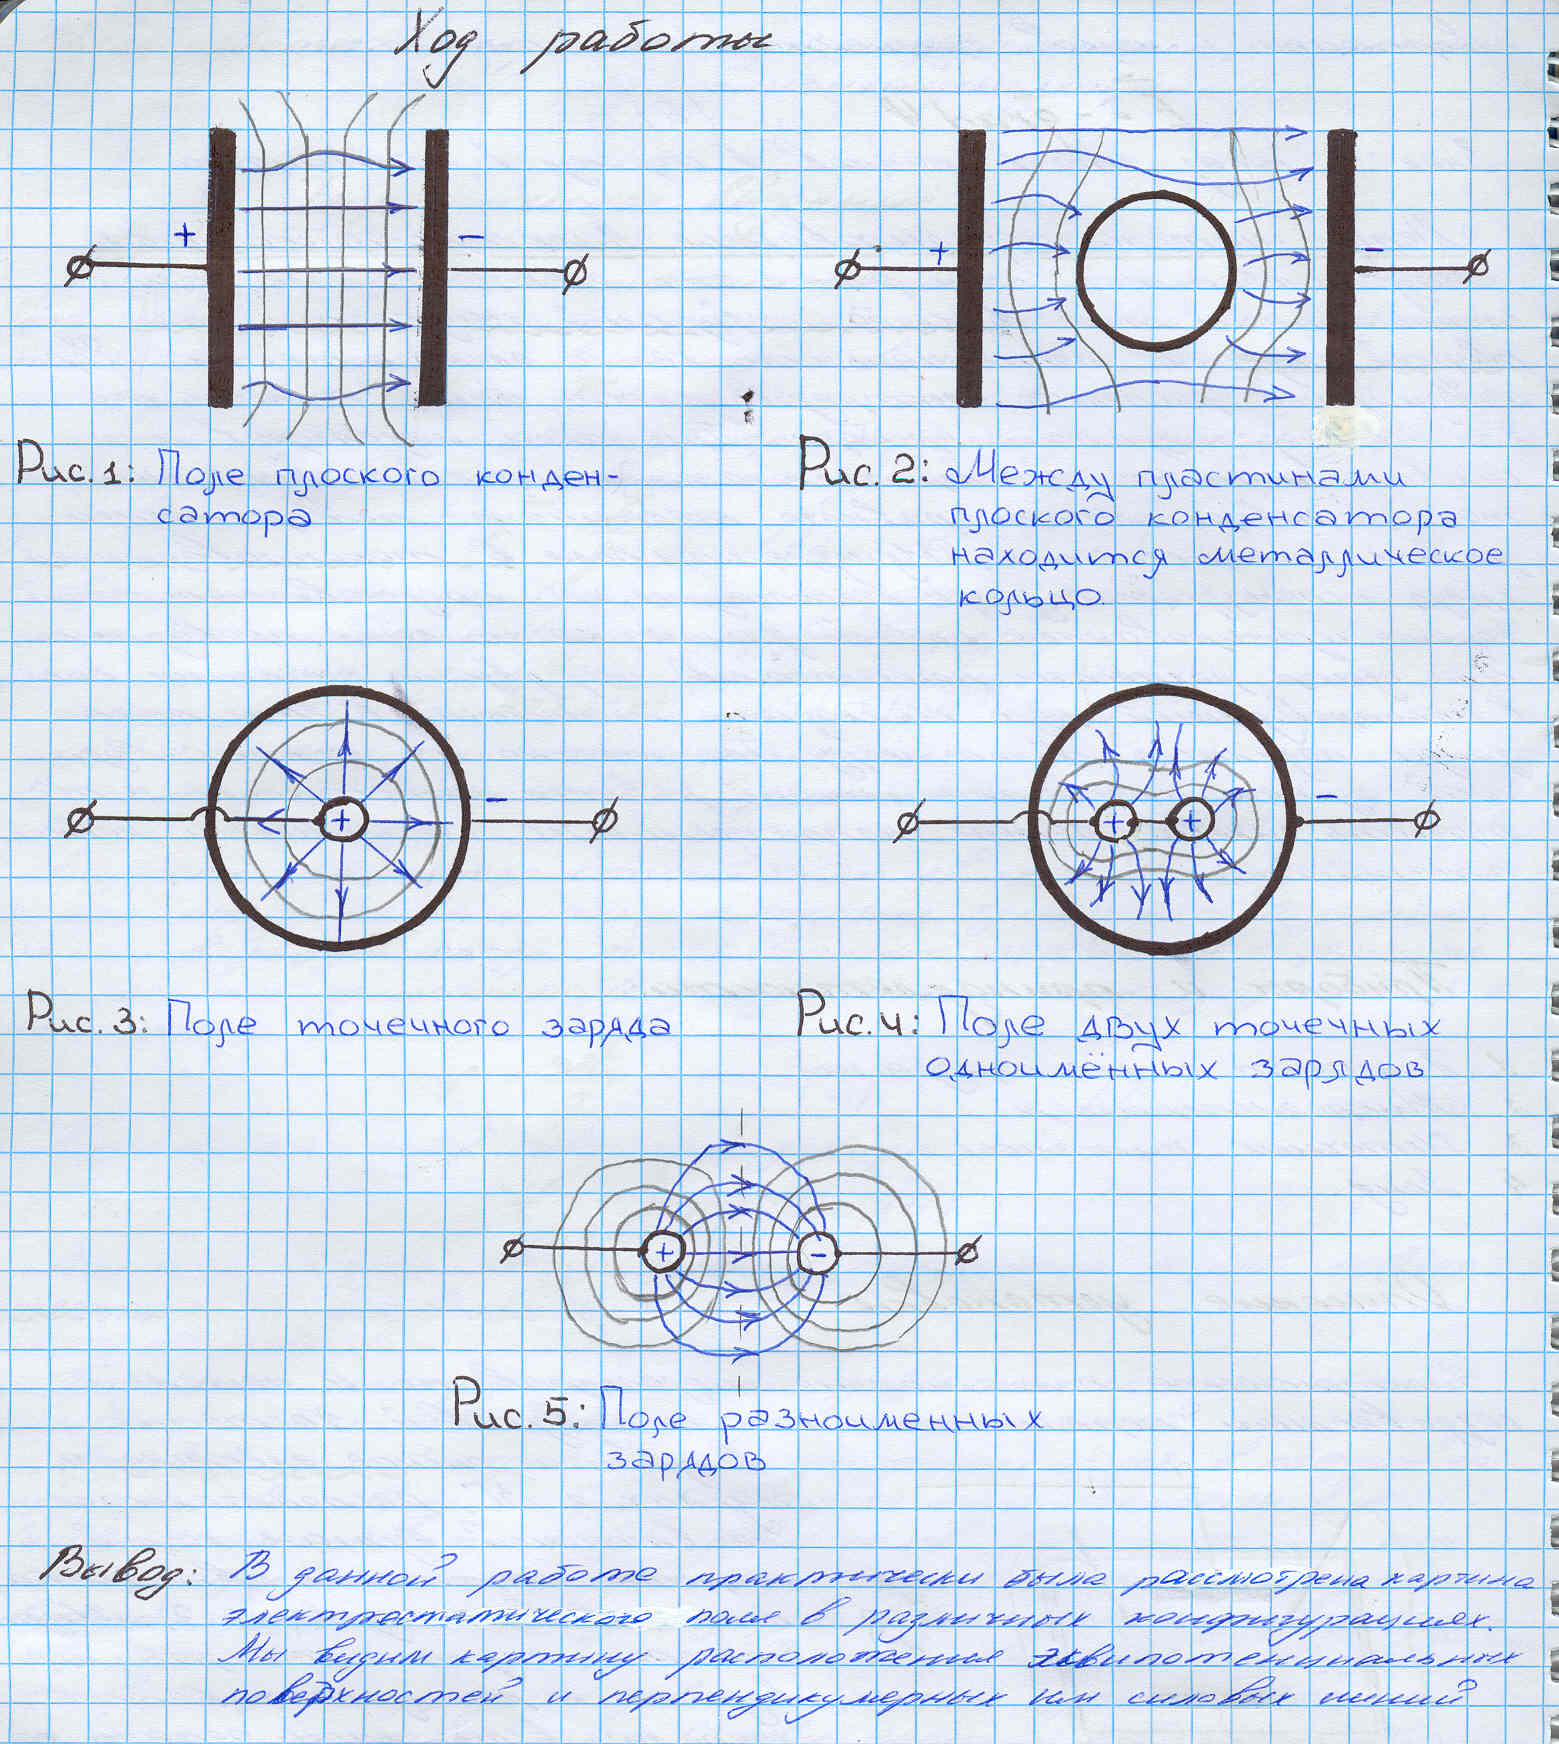 Ход работы
+
-
+
-
Рис. 1: Поле плоского конден-
сатора
Рис. 2: Между пластинами
плоского конденсатора
находится металлическое
кольцо.
+
-
+
+
-
Рис. 3: Поле точечного заряда
Рис. 4: Поле двух точечных
одноимённых зарядов
+
-
Рис. 5: Поле разноименных
зарядов
Вывод: В данной работе практически была рассмотрена картина
электростатического поля в различных конфигурациях.
Мы видим картину расположения эквипотенциальных
поверхностей и перпендикулярных им силовых линий